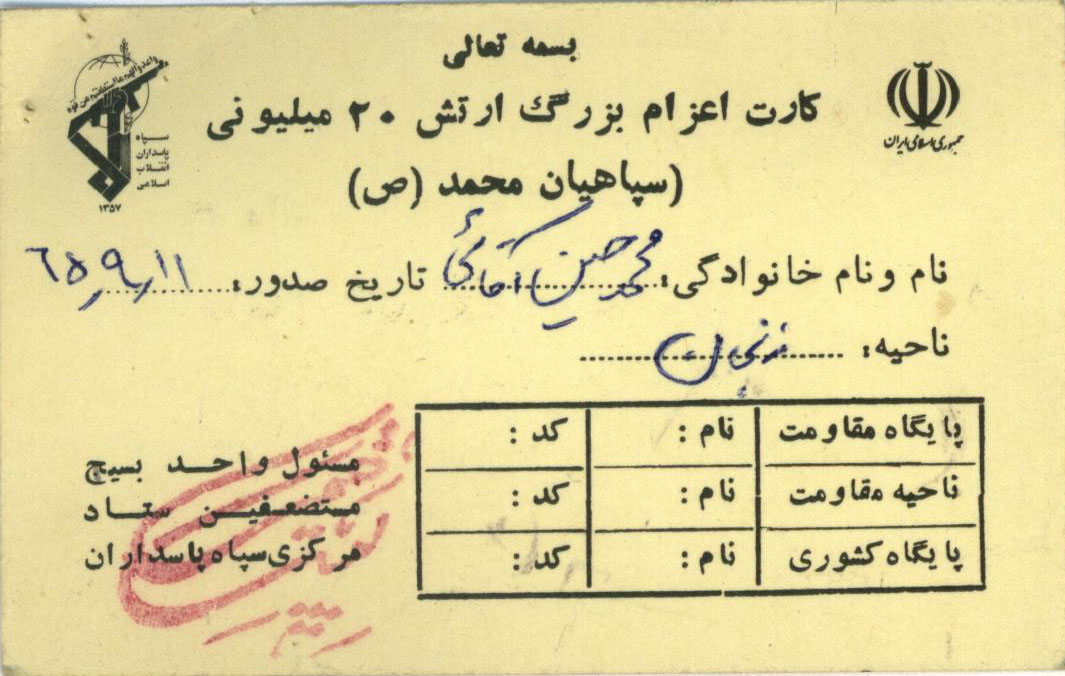 بسمه تعالی
کارت اعزام بزرگ ارتش ۲۰ میلیونی
(سپاهیان محمد (ص)
جمهوری اسلامی ایران
سپاه
پاسداران
انقلاب
اسلامی
۱۳۵۷
نام و نام خانوادگی: محمد حسین آقائی تاریخ صدور: ۶۵٫۹٫۱۱
ناحیه: زنجان
پایگاه مقاومت نام : کد :
ناحیه مقاومت نام : کد :
پایگاه کشوری نام : کد :
مسئول واحد بسیج
مستضعفین ستاد
مرکزی سپاه پاسداران